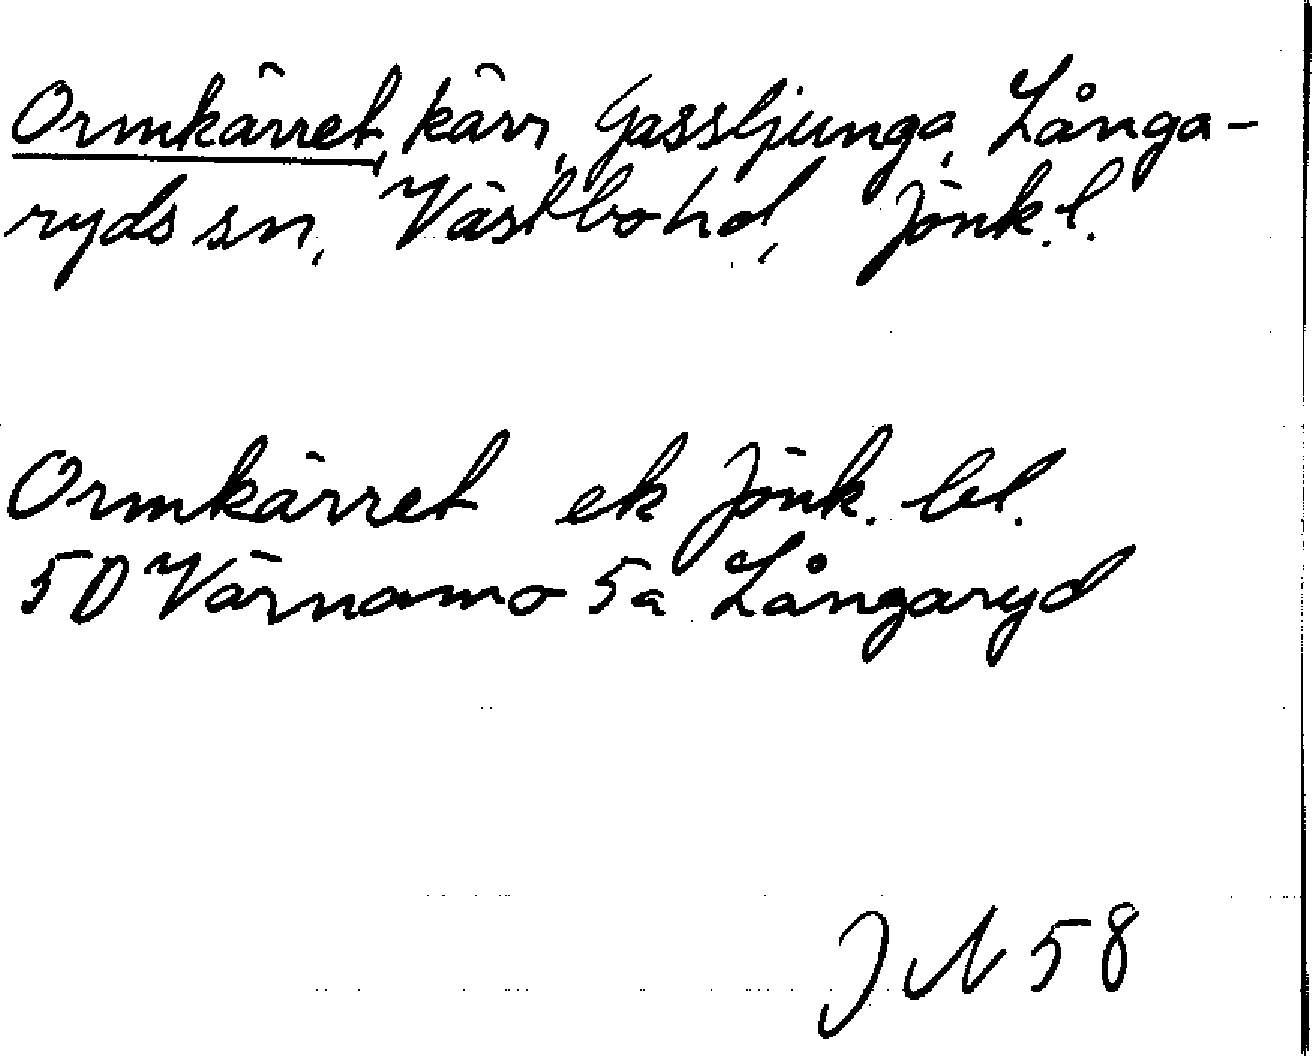 Ormkärret, kärr, Gassljunga, Långa-
ryds sn, Västbo hd, Jönk.l.
Ormkärret ek Jönk. bl.
5D Värnamo 5a Långaryd
JN 58